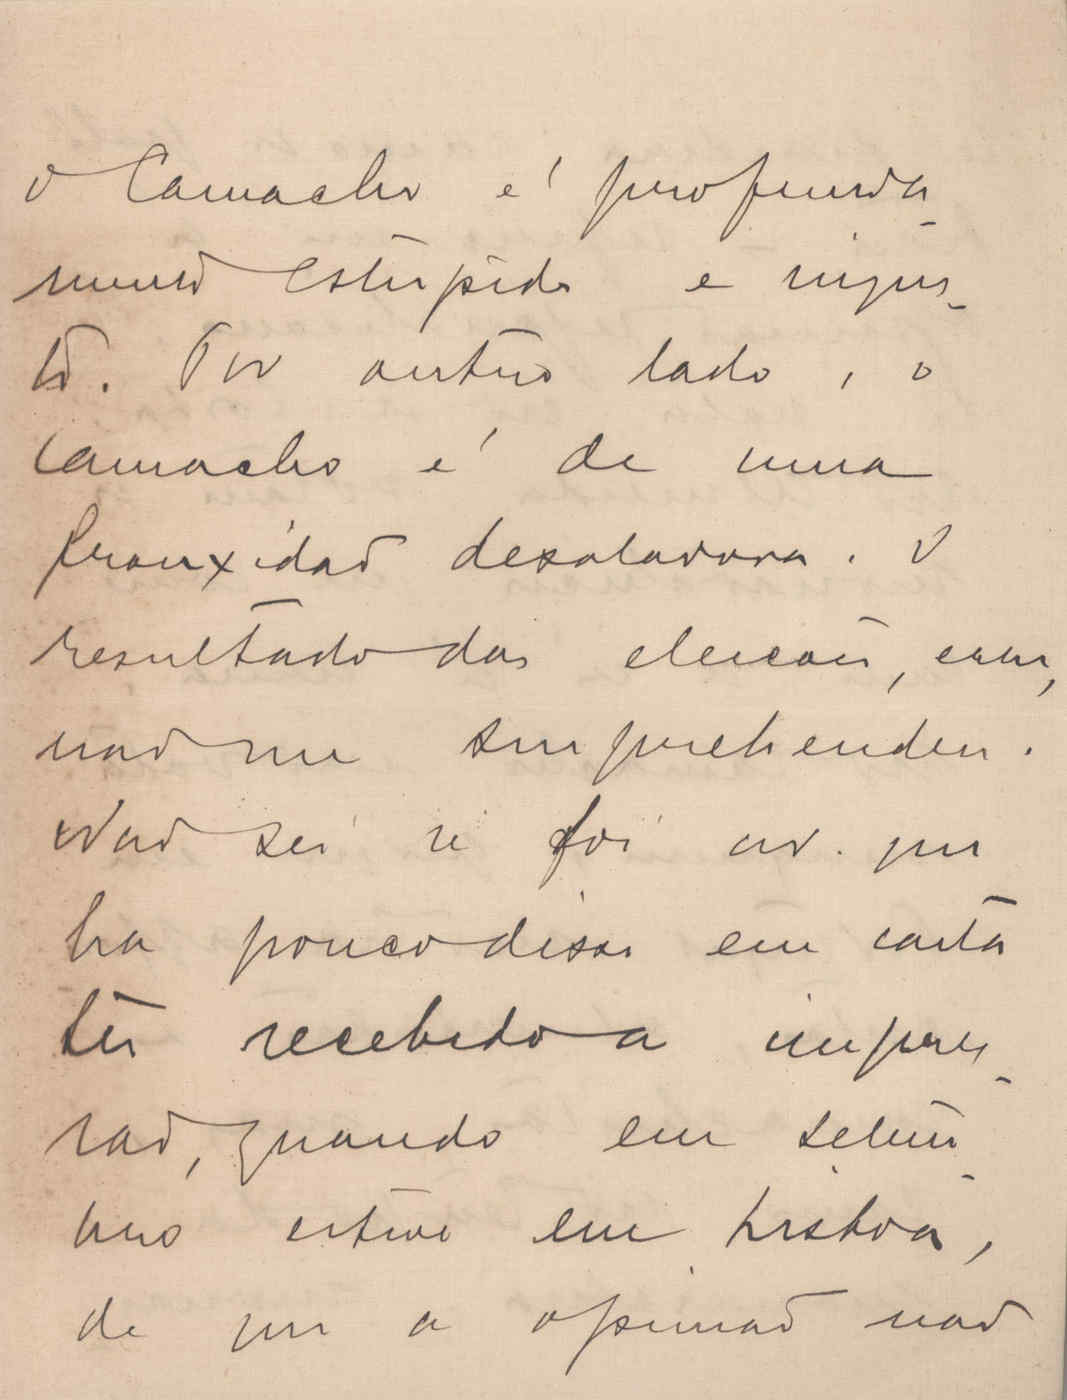 O Camacho é profunda-
mente estupido e injus-
to. Por outro lado, o
Camacho é de uma
frouxidão desoladora. O
resultado das eleições,
não me surprehendeu.
Não sei se foi que
ha pouco disse em carta
ter recebido a impres-
são, quando em Setem-
bro estive em Lisboa,
de que a opinião não